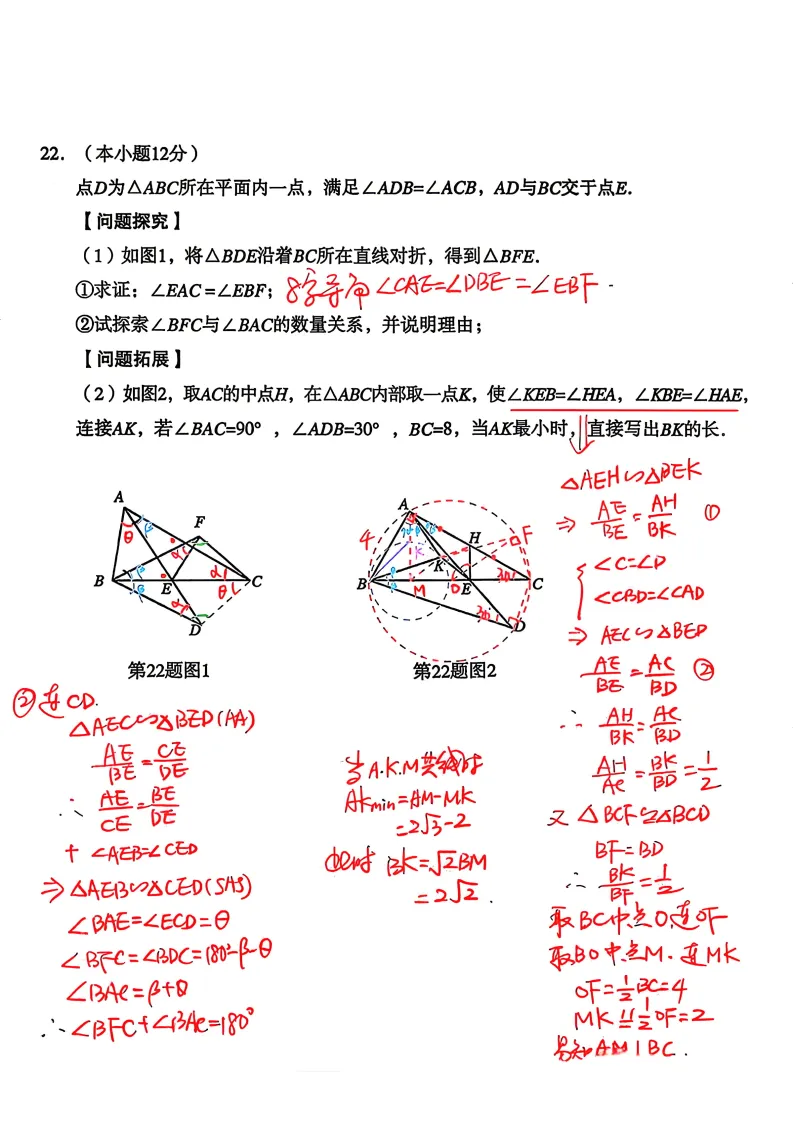 22. （本小题12分）
点D为△ABC所在平面内一点，满足∠ADB=∠ACB，AD与BC交于点E.
【问题探究】
（1）如图1，将△BDE沿着BC所在直线对折，得到△BFE.
①求证：∠EAC =∠EBF；
8字导角 ∠CAE=∠DBE=∠EBF
②试探索∠BFC与∠BAC的数量关系，并说明理由；
【问题拓展】
（2）如图2，取AC的中点H，在△ABC内部取一点K，使∠KEB=∠HEA，∠KBE=∠HAE，
连接AK，若∠BAC=90°，∠ADB=30°，BC=8，当AK最小时，直接写出BK的长.
A
F
θ
β
α
B
E
C
D
第22题图1
A
4
H
F
K
B
M
O
E
C
30°
D
第22题图2
②连CD.
△AEC∽△BED(AA)
AE/BE=CE/DE
∴ AE/CE=BE/DE
+ ∠AEB=∠CED
⇒△AEB∽△CED(SAS)
∠BAE=∠ECD=θ
∠BFC=∠BDC=180°-β-θ
∠BAC=β+θ
∴∠BFC+∠BAC=180°
当A.K.M共线时
AKmin=AM-MK
=2√3-2
此时 BK=√2BM
=2√2.
△AEH∽△BEK
⇒ AE/BE=AH/BK ①
{∠C=∠D
∠CBD=∠CAD
⇒ △AEC∽△BED
AE/BE=AC/BD ②
∴ AH/BK=AC/BD
AH/AC=BK/BD=1/2
又△BCF≌△BCD
BF=BD
∴ BK/BF=1/2
取BC中点O,连OF
取BO中点M.连MK
OF=1/2BC=4
MK∥=1/2OF=2
易知AM⊥BC.